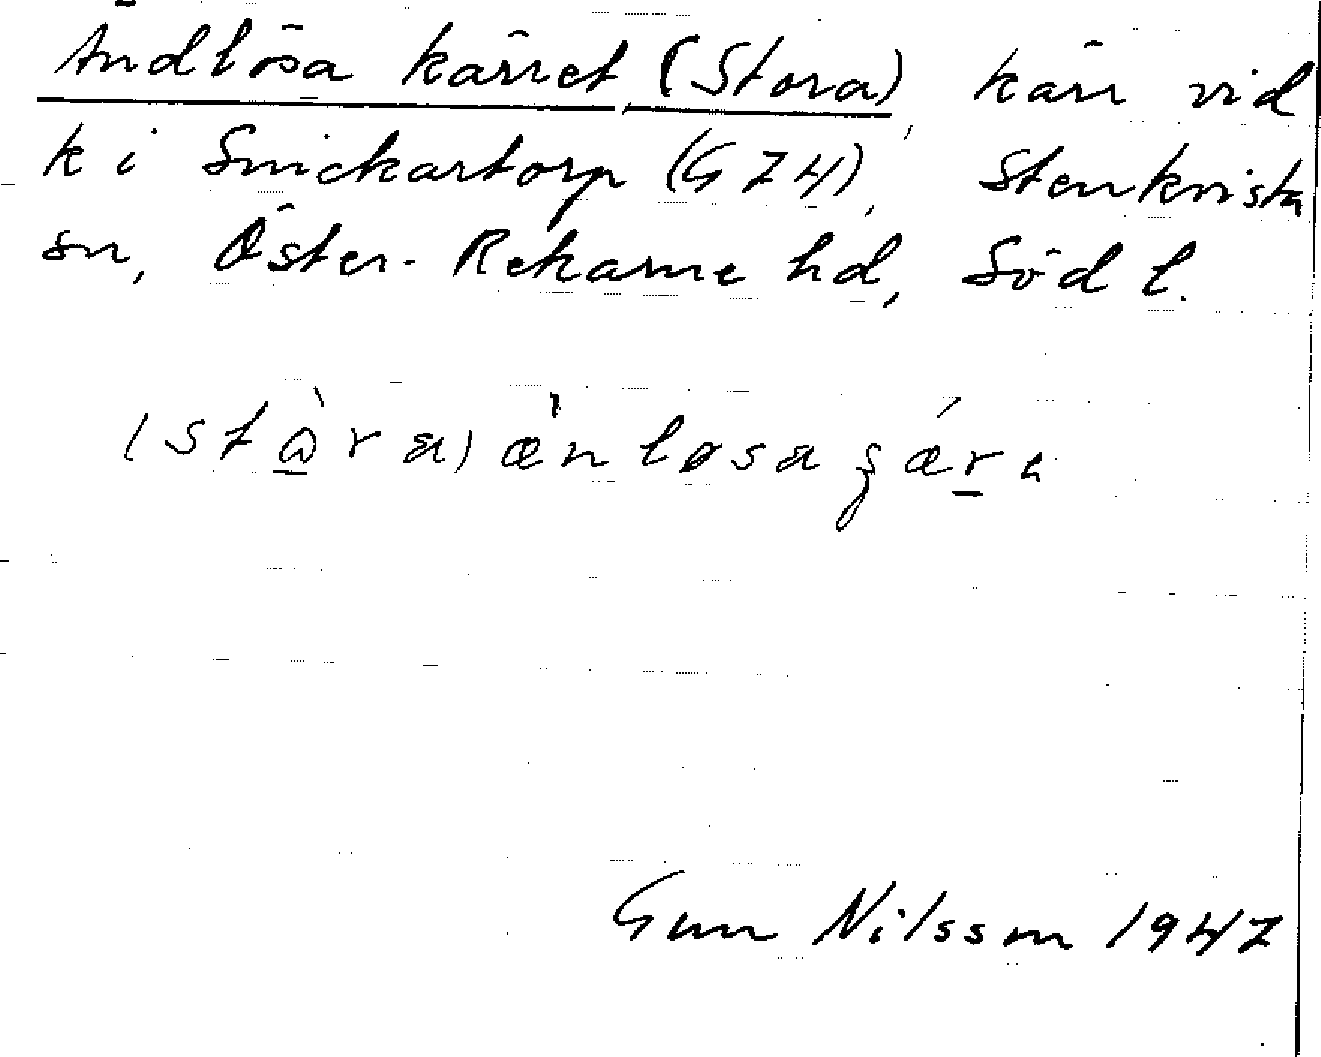 Ändlösa kärret, (Stora), kärr vid
k i Snickartorp (G 74), Stenkvista
sn, Öster-Rekarne hd, Södl.
(stὼra) æ̀nløsa
Gun Nilsson 1947